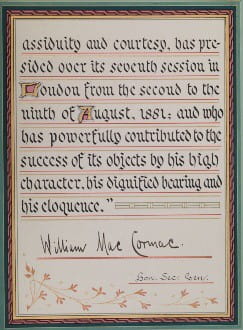 assiduity and courtesy, has pre-
sided over its seventh session in
London from the second to the
ninth of August, 1881; and who
has powerfully contributed to the
success of its objects by his high
character, his dignified bearing and
his eloquence."
William Mac Cormac.
Hon. Sec. Gen.